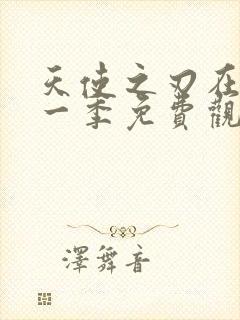 天使之刃在
一季免費觀
澤舞音